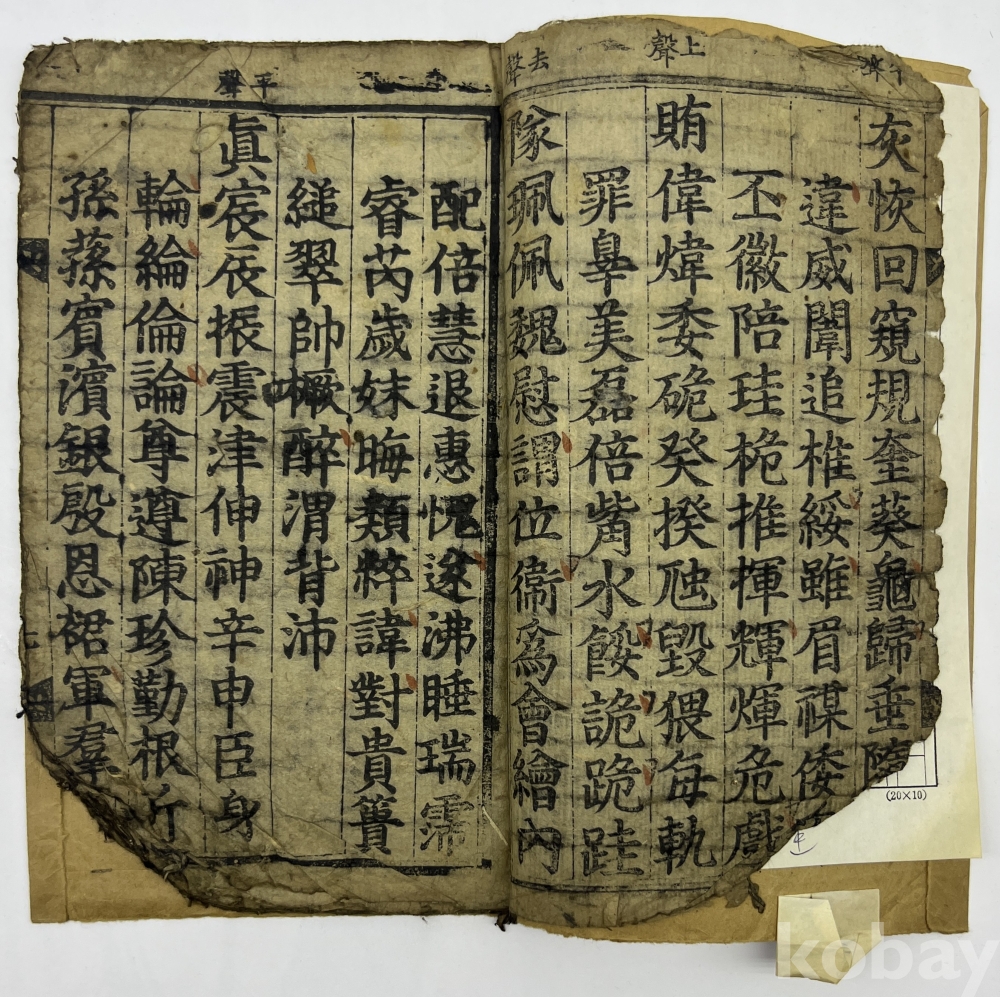 平聲
灰恢回窺規奎葵龜歸垂
違威闈追椎綏雖眉禖倭
丕徽陪珪桅推揮輝煇危戲
上聲
賄偉煒委硊癸揆虺毀猥每軌
罪辠美磊倍觜水餒詭跪跬
去聲
隊珮佩魏慰謂位衞爲會繪內
配倍慧退惠愧邃沸睡瑞霈
睿芮歲妹晦類粹諱對貴簣
縋翠帥橛醉渭背沛
平聲
眞宸辰振震津伸神辛申臣身
輪綸倫論尊遵陳珍勤根斤
孫蓀賓濱銀殷恩裙軍羣
(20×10)
kobay